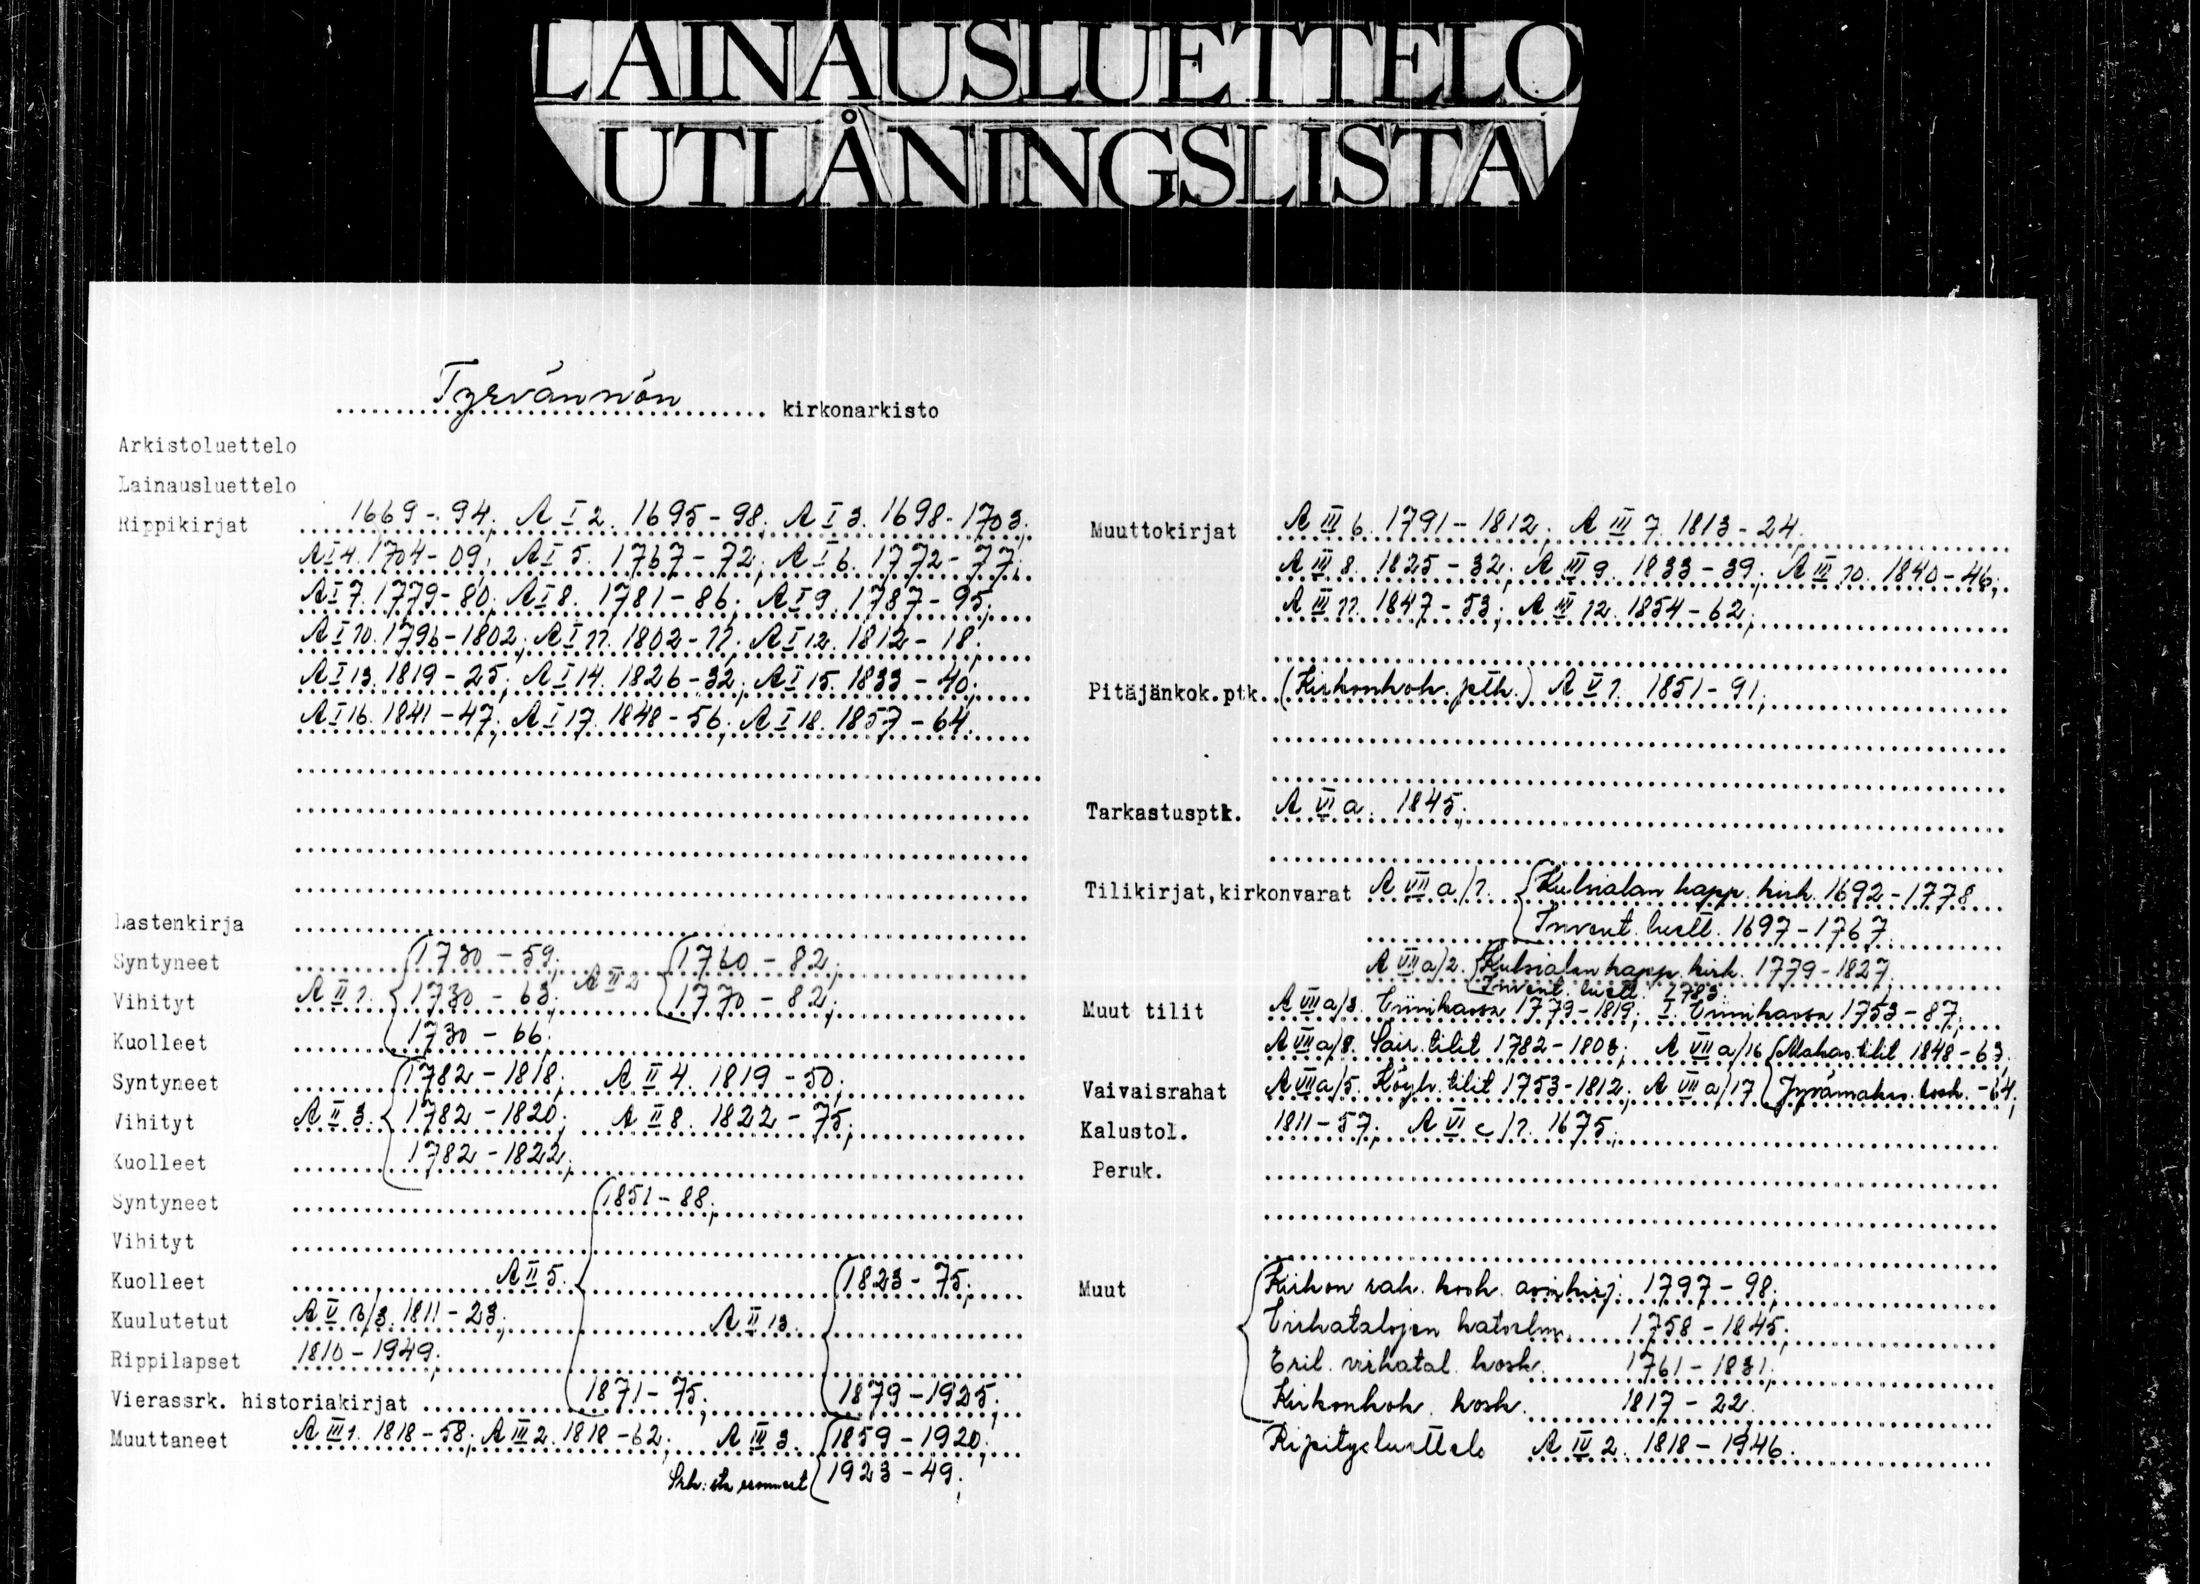 LAINAUSLUETTELO
UTLÅNINGSLISTA
Tyrvännön kirkonarkisto
Arkistoluettelo
Lainausluettelo
Rippikirjat 1669-94; A I 2. 1695-98; A I 3. 1698-1703;
A I 4. 1704-09; A I 5. 1767-72; A I 6. 1772-77;
A I 7. 1779-80; A I 8. 1781-86; A I 9. 1787-95;
A I 10. 1796-1802; A I 11. 1802-11; A I 12. 1812-18;
A I 13. 1819-25; A I 14. 1826-32; A I 15. 1833-40;
A I 16. 1841-47; A I 17. 1848-56; A I 18. 1857-64.
Lastenkirja
Syntyneet 1730-59; 1760-82;
Vihityt A II 1. 1730-63; A II 2 1770-82;
Kuolleet 1730-66;
Syntyneet 1782-1818; A II 4. 1819-50;
Vihityt A II 3. 1782-1820; A II 8. 1822-75;
Kuolleet 1782-1822;
Syntyneet 1851-88;
Vihityt
Kuolleet A II 5. 1823-75;
Kuulutetut A V B/3. 1811-23; A II 13.
Rippilapset 1810-1949;
Vierassrk. historiakirjat 1871-75; 1879-1925;
Muuttaneet A III 1. 1818-58; A III 2. 1818-62; A III 3. 1859-1920;
Srk:sta eronneet 1923-49;
Muuttokirjat A III 6. 1791-1812; A III 7. 1813-24;
A III 8. 1825-32; A III 9. 1833-39; A III 10. 1840-46;
A III 11. 1847-53; A III 12. 1854-62;
Pitäjänkok.ptk. (Kirkonkok. ptk.) A V 1. 1851-91;
Tarkastusptk. A VI a. 1845;
Tilikirjat, kirkonvarat A VII a/1. Kulsialan kapp. kirk. 1692-1778
Invent. luett. 1697-1767.
A VII a/2. Kulsialan kapp. kirk. 1779-1827;
Invent. luett. 1783.
Muut tilit A VII a/3. 1779-1819; 1753-87;
A VII a/8. Sair. tilit 1782-1803; A VII a/16 Makas. tilit 1848-63;
Vaivaisrahat A VII a/5. Köyh. tilit 1753-1812; A VII a/17 Jyvämakas. kosk. -64;
Kalustol. 1811-57; A VI c/1. 1675;
Peruk.
Muut Kirkon rak. kosk. asiakirj. 1797-98;
Virkatalojen katselm. 1758-1845;
Eril. virkatal. kosk. 1761-1831;
Kirkonkok. kosk. 1817-22.
Ripitysluettelo A IV 2. 1818-1946.